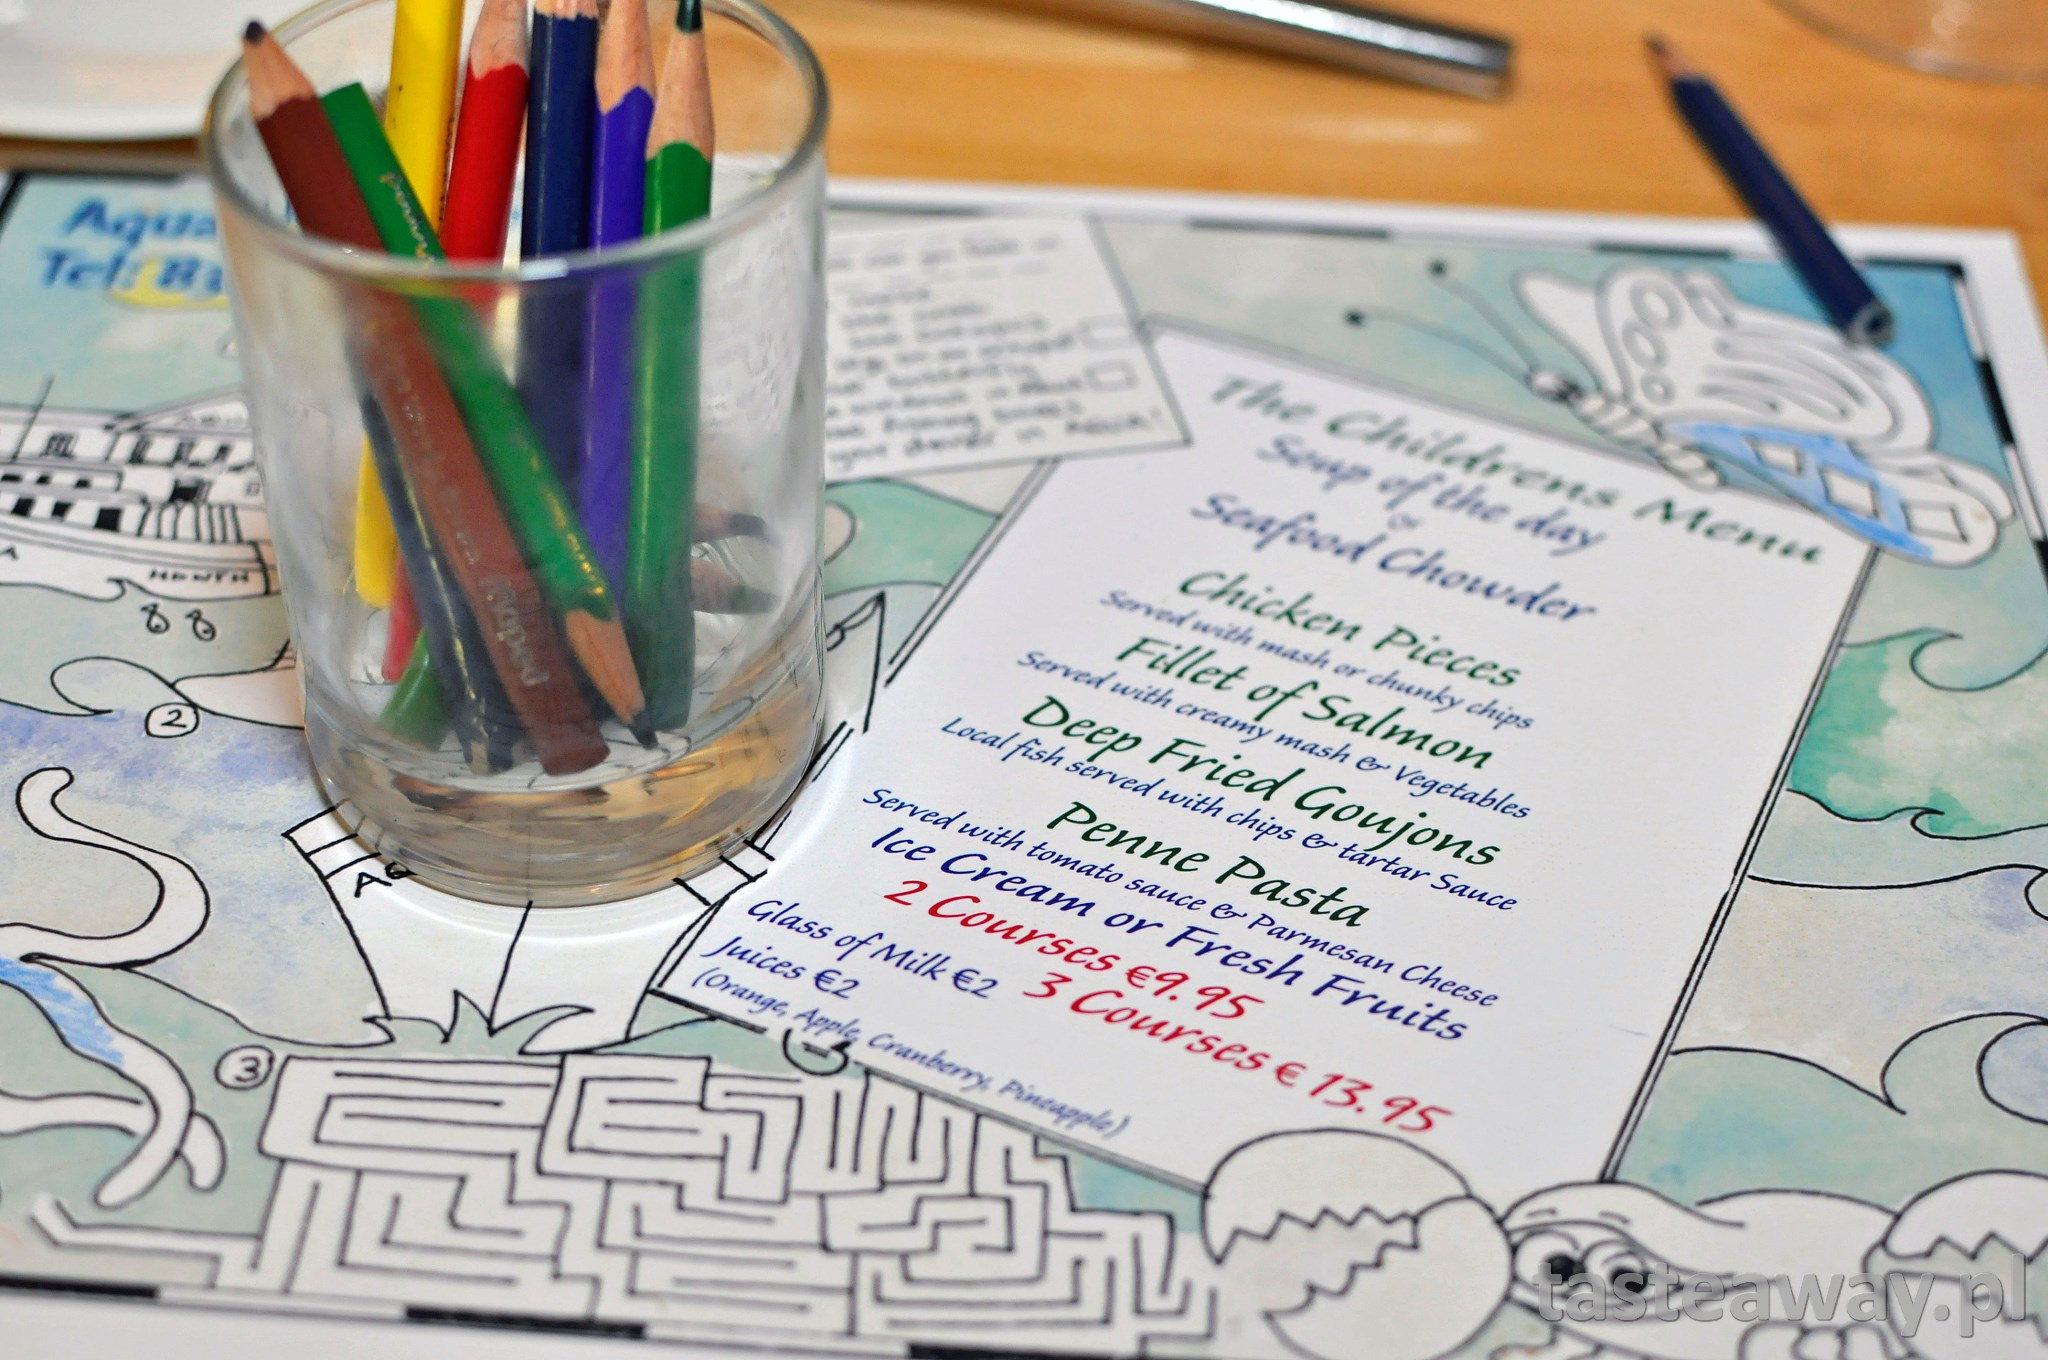 Aqua
Tel: 8
The Childrens Menu
Soup of the day
&
Seafood Chowder
Chicken Pieces
Served with mash or chunky chips
Fillet of Salmon
Served with creamy mash & Vegetables
Deep Fried Goujons
Local fish served with chips & tartar Sauce
Penne Pasta
Served with tomato sauce & Parmesan Cheese
Ice Cream or Fresh Fruits
2 Courses €9.95
3 Courses € 13.95
Glass of Milk €2
Juices €2
(Orange, Apple, Cranberry, Pineapple)
your dinner in AQUA!
2
A
3
tasteaway.pl